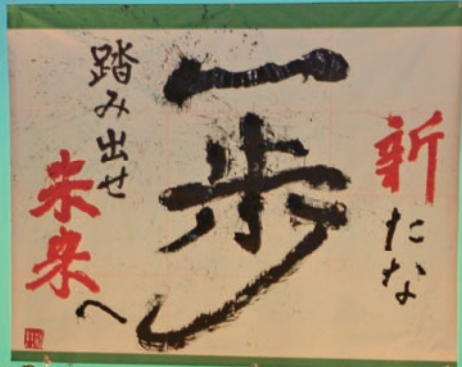 新たな
一歩
踏み出せ
未来へ